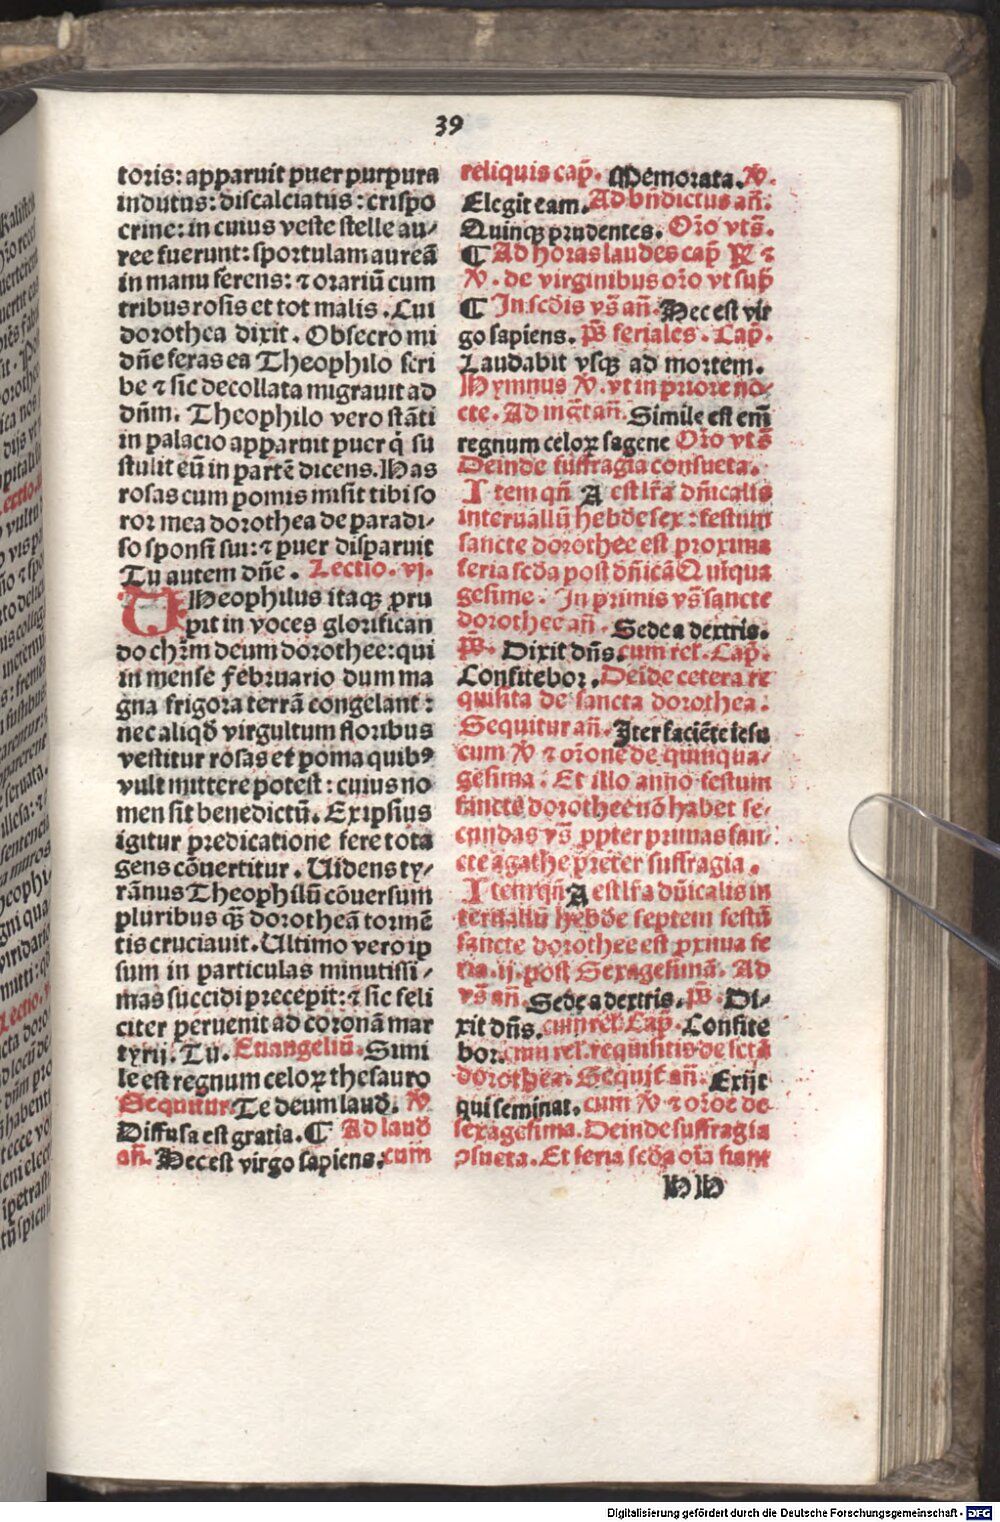 39
toris: apparuit puer purpura
indutus: discalciatus: crispo
crine: in cuius veste stelle au-
ree fuerunt: sportulam aureā
in manu ferens: ⁊ orariū cum
tribus rosis et tot malis. Cui
dorothea dixit. Obsecro mi
dn̄e feras ea Theophilo scri
be ⁊ sic decollata migrauit ad
dn̄m. Theophilo vero stāti
in palacio apparuit puer q̇ su
stulit eū in partē dicens. Has
rosas cum pomis misit tibi so
ror mea dorothea de paradi-
so sponsi sui: ⁊ puer disparuit
Tu autem dn̄e. Lectio. vj.
THeophilus itaqꝫ pru
pit in voces glorifican
do chr̄m deum dorothee: qui
in mense februario dum ma
gna frigora terrā congelant:
nec aliqđ virgultum floribus
vestitur rosas et poma quibꝰ
vult mittere potest: cuius no
men sit benedictū. Ex ipsius
igitur predicatione fere tota
gens cōuertitur. Uidens ty-
rānus Theophilū cōuersum
pluribus qꝫ̄ dorotheā tormē
tis cruciauit. Ultimo vero ip
sum in particulas minutissi-
mas succidi precepit: ⁊ sic feli
citer peruenit ad coronā mar
tyrij. Tu. Euangeliū. Simi
le est regnum celoꝝ thesauro
Sequitur. Te deum laud̄. ℣
Diffusa est gratia. ¶ Ad laud̄
an̄. Hec est virgo sapiens. cum
reliquis cap̄. Memorata. ℣.
Elegit eam. Ad bn̄dictus an̄.
Quinqꝫ prudentes. Or̄o vts̄.
¶ Ad horas laudes cap̄ ℟ ⁊
℣. de virginibus or̄o vt sup̄
¶ In scd̄is vs̄ an̄. Hec est vir
go sapiens. ps̄ feriales. Cap̄.
Laudabit vsqꝫ ad mortem.
Hymnus ℣. vt in priore no-
cte. Ad mgt̄ an̄. Simile est em̄
regnum celoꝝ sagene Or̄o vts̄
Deinde suffragia consueta.
Item qn̄ A est lr̄a dn̄icalis
interuallū hebd̄e sex: festum
sancte dorothee est proxima
feria scd̄a post dn̄icā Quinqua
gesime. In primis vs̄ sancte
dorothee an̄. Sede a dextris.
ps̄. Dixit dn̄s. cum rel. Cap̄.
Confitebor. Deīde cetera re
quisita de sancta dorothea.
Sequitur an̄. Iter faciēte iesu
cum ℣ ⁊ or̄one de quinqua-
gesima. Et illo anno festum
sancte dorothee nō habet se-
cundas vs̄ ꝓpter primas san-
cte agathe preter suffragia.
Item qn̄ A est lr̄a dn̄icalis in
teruallū hebd̄e septem festū
sancte dorothee est ꝓxima fe
ria. ij. post Sexagesimā. Ad
vs̄ an̄. Sede a dextris. ps̄. Di-
xit dn̄s. cum rel. Cap̄. Confite
bor. cum rel. requisitis de sctā
dorothea. Sequit̄ an̄. Exijt
qui seminat. cum ℣ ⁊ or̄oe de
sexagesima. Deinde suffragia
ꝯsueta. Et feria scd̄a oīa fiant
HH
Digitalisierung gefördert durch die Deutsche Forschungsgemeinschaft - DFG